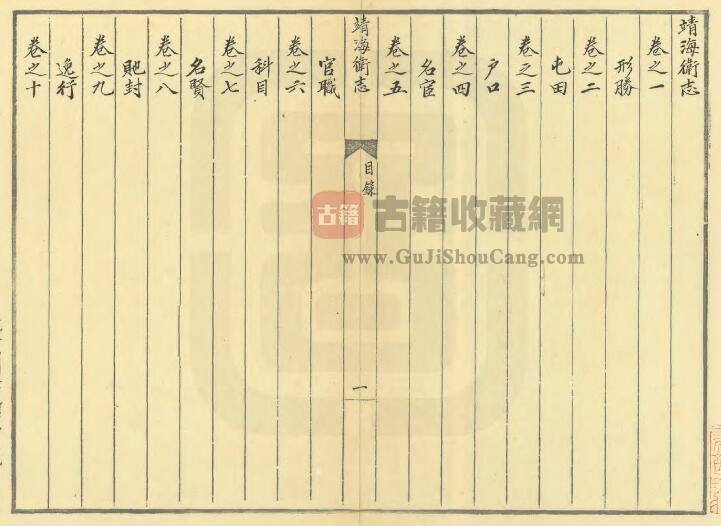 靖海衛志
卷之一
形勝
卷之二
屯田
卷之三
户口
卷之四
名宦
卷之五
靖海衛志
目錄
一
官職
卷之六
科目
卷之七
名賢
卷之八
貤封
卷之九
逸行
卷之十
古籍
古籍收藏網
www.GuJiShouCang.com